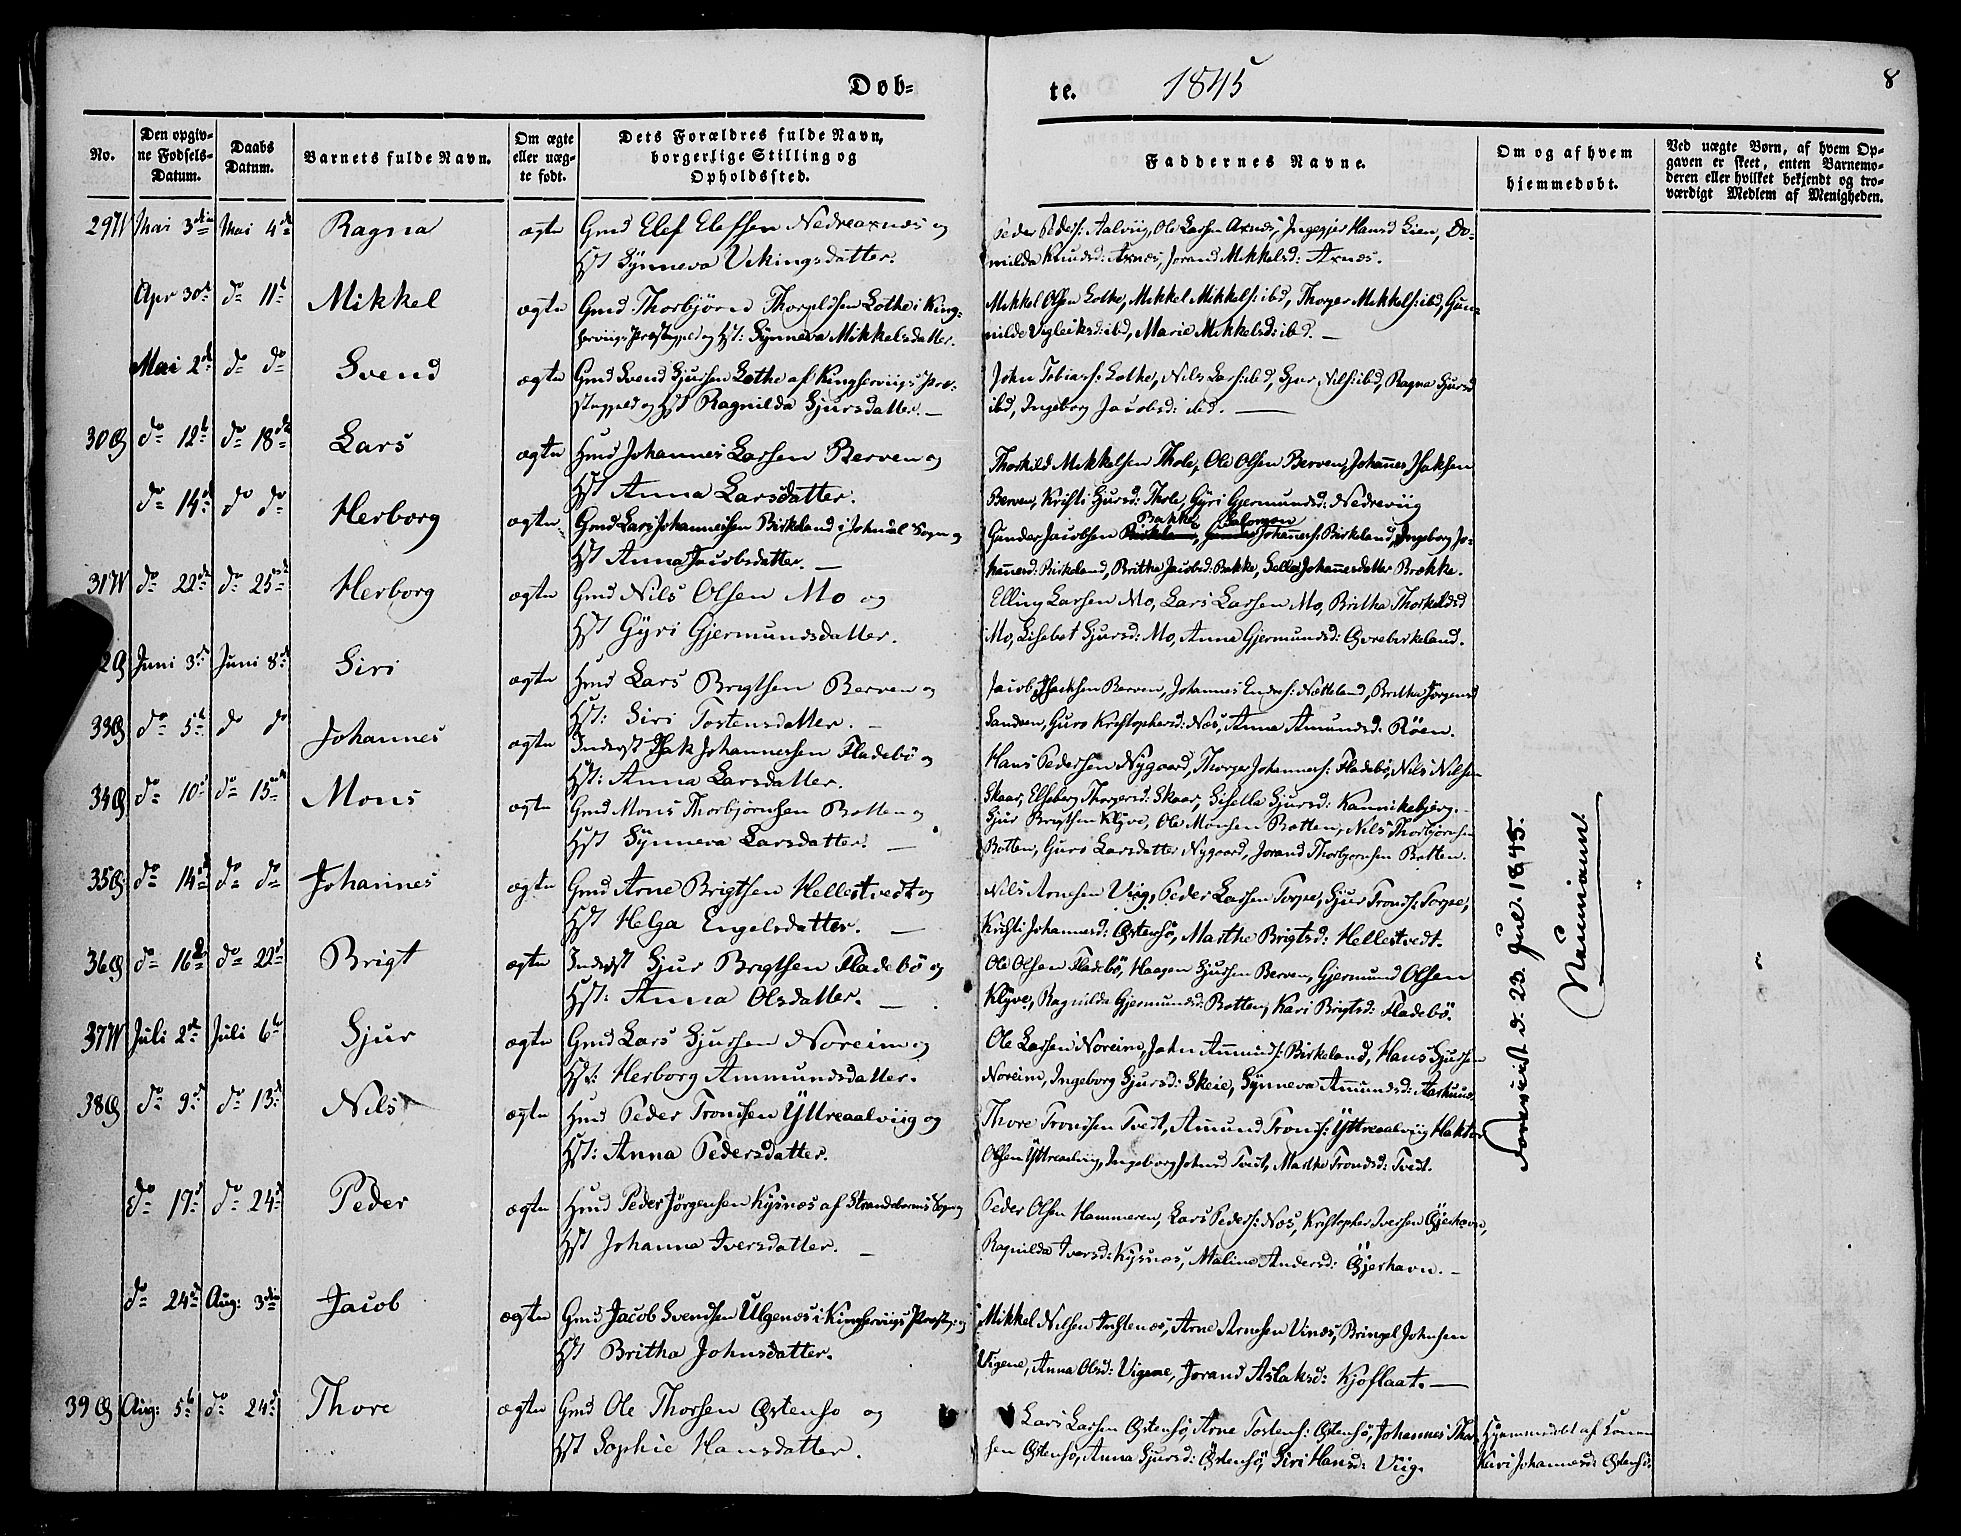 Døb-
te.
1845
8
No.
Den opgiv-
ne Fødsels-
Datum.
Daabs
Datum.
Barnets fulde Navn.
Om ægte
eller uæg-
te født.
Dets Forældres fulde Navn,
borgerlige Stilling og
Opholdssted.
Faddernes Navne.
Om og af hvem
hjemmedøbt.
Ved uægte Børn, af hvem Op-
gaven er skeet, enten Barnemo-
deren eller hvilket bekjendt og tro-
værdigt Medlem af Menigheden.
29 Mai 3die Mai 4de Ragna ægte Gmd Elef Elefsen Nedreaxnæs og
Hst Synneva Vikingsdatter.
Peder Peders: Aalviig, Ole Larsen Axnæs, Ingegjer Hansd Lien, Do-
milda Knudsd: Axnæs, Jorand Mikkelsd: Axnæs.
Apr 30 do 11t Mikkel ægte Gmd Thorbjørn Thorgilsen Lothe i King-
serviigs Præstegjeld og Hst: Synneva Mikkelsdatter.
Mikkel Olsen Lothe, Mikkel Mikkels: ibd, Thorger Mikkels: ibd, Gun-
nilde Vigleiksd: ibd, Marie Mikkelsd: ibd. –
Mai 2d do do Svend ægte Gmd Svend Sjursen Lothe af Kingserviigs Præ-
stegjeld og Hst Ragnilda Sjursdatter. –
John Tobias: Lothe, Nils Lars: ibd, Sjur Nils: ibd, Ragna Sjursd
ibd, Ingeborg Jacobsd: ibd. –
30 do 12t do 18de Lars ægte Hmd Johannes Larsen Berven og
Hst Anna Larsdatter.
Thorkild Mikkelsen Thole, Ole Olsen Berven, Johannes Isaksen
Berven, Kristi Sjursd: Thole, Gyri Gjermundsd: Nedreviig
do 14d do do Herborg ægte Gmd Lars Johannessen Birkeland i Johndal Sogn og
Hst Anna Jacobsdatter. –
Bakke Salomon
Gunder Jacobsen Birkeland, Gunder Johannes: Birkeland, Ingeborg Jo-
hannesd: Birkeland, Britha Jacobsd: Bakke, Johannesdatter Brække.
31 do 22de do 25de Herborg ægte Gmd Nils Olsen Mo og
Hst Gyri Gjermundsdatter.
Elling Larsen Mo, Lars Larsen Mo, Britha Thorkildsd
Mo, Lisebet Sjursd: Mo, Anna Gjermundsd: Øvrebirkeland.
Juni 3d Juni 8d Siri ægte Hmd Lars Brigtsen Berven og
Hst: Siri Tostensdatter. –
Jacob Isaksen Berven, Johannes Endres: Nætteland, Britha Jørgensd
Sandven, Guro Kristophersd: Næs, Anna Amundsd: Røen.
33 do 5t do do Johannes ægte Inderst Isak Johannessen Fladebø og
Hst: Anna Larsdatter.
Hans Pedersen Nygaard, Thorger Johannes: Fladebø, Nils Nilsen
Skaar, Elseberg Thorgersd: Skaar, Gisella Sjursd: Kannikebjerg. –
34 do 10d do 15de Mons ægte Gmd Mons Thorbjørnsen Botten og
Hst Synneva Larsdatter. –
Sjur Brigtsen Klyve, Ole Monsen Botten, Nils Thorbjørnsen
Botten, Guro Larsdatter Nygaard, Jorand Thorbjørnsen Botten.
35 do 14d do do Johannes ægte Gmd Arne Brigtsen Hellestvedt og
Hst Helga Engelsdatter. –
Nils Arnesen Viig, Peder Larsen Torpe, Sjur Tronds: Torpe,
Kristi Johannesd: Østensø, Marthe Brigtsd: Hellestvedt.
36 do 16d do 22d Brigt ægte Inderst Sjur Brigtsen Fladebø og
Hst: Anna Olsdatter. –
Ole Olsen Fladebø, Haagen Sjursen Berven, Gjermund Olsen
Klyve, Ragnilda Gjermundsd: Botten, Kari Brigtsd: Fladebø.
37 Juli 2d Juli 6t Sjur ægte Gmd Lars Sjursen Noreim og
Hst: Herborg Ammundsdatter.
Ole Larsen Noreim, John Amunds: Birkeland, Hans Sjursen
Noreim, Ingeborg Sjursd: Skeie, Synneva Amundsd: Aarhuus.
38 do 9d do 13d Nils ægte Hmd Peder Trondsen Yttreaalviig og
Hst: Anna Pedersdatter.
Thore Trondsen Tvedt, Amund Tronds: Yttreaalviig Haktor
Olsen Yttreaalviig, Ingeborg Johnsd Tvedt, Marthe Trondsd: Tvedt.
do 17d do 24d Peder ægte Hmd Peder Jørgensen Kysnæs af Strandebarms Sogn og
Hst Johanna Iversdatter. –
Peder Olsen Hammeren, Lars Peders: Næs, Kristopher Iversen Øjerhavn,
Ragnilda Iversd: Kysnæs, Maline Andersd: Øjerhavn. –
do 24d Aug: 3die Jacob ægte Gmd Jacob Svendsen Ulgenæs i Kingserviigs Præstg: og
Hst Britha Johnsdatter.
Mikkel Nilsen Trestenæs, Arne Arnesen Vinæs, Bringel Johnsen
Vigene, Anna Olsd: Vigene, Jorand Aslaksd: Kjoflaat. –
39 Aug: 5t do 24d Thore ægte Gmd Ole Thorsen Østensø og
Hst Sophie Hansdatter.
Lars Larsen Østensø, Arne Tostens: Østensø, Johannes Thor-
sen Østensø, Anna Sjursd: Østensø, Siri Hansd: Viig.
Hjemmedøbt af Konen
Kari Johannesd: Østensø.
d. 23. Jul. 1845.
Neumann.